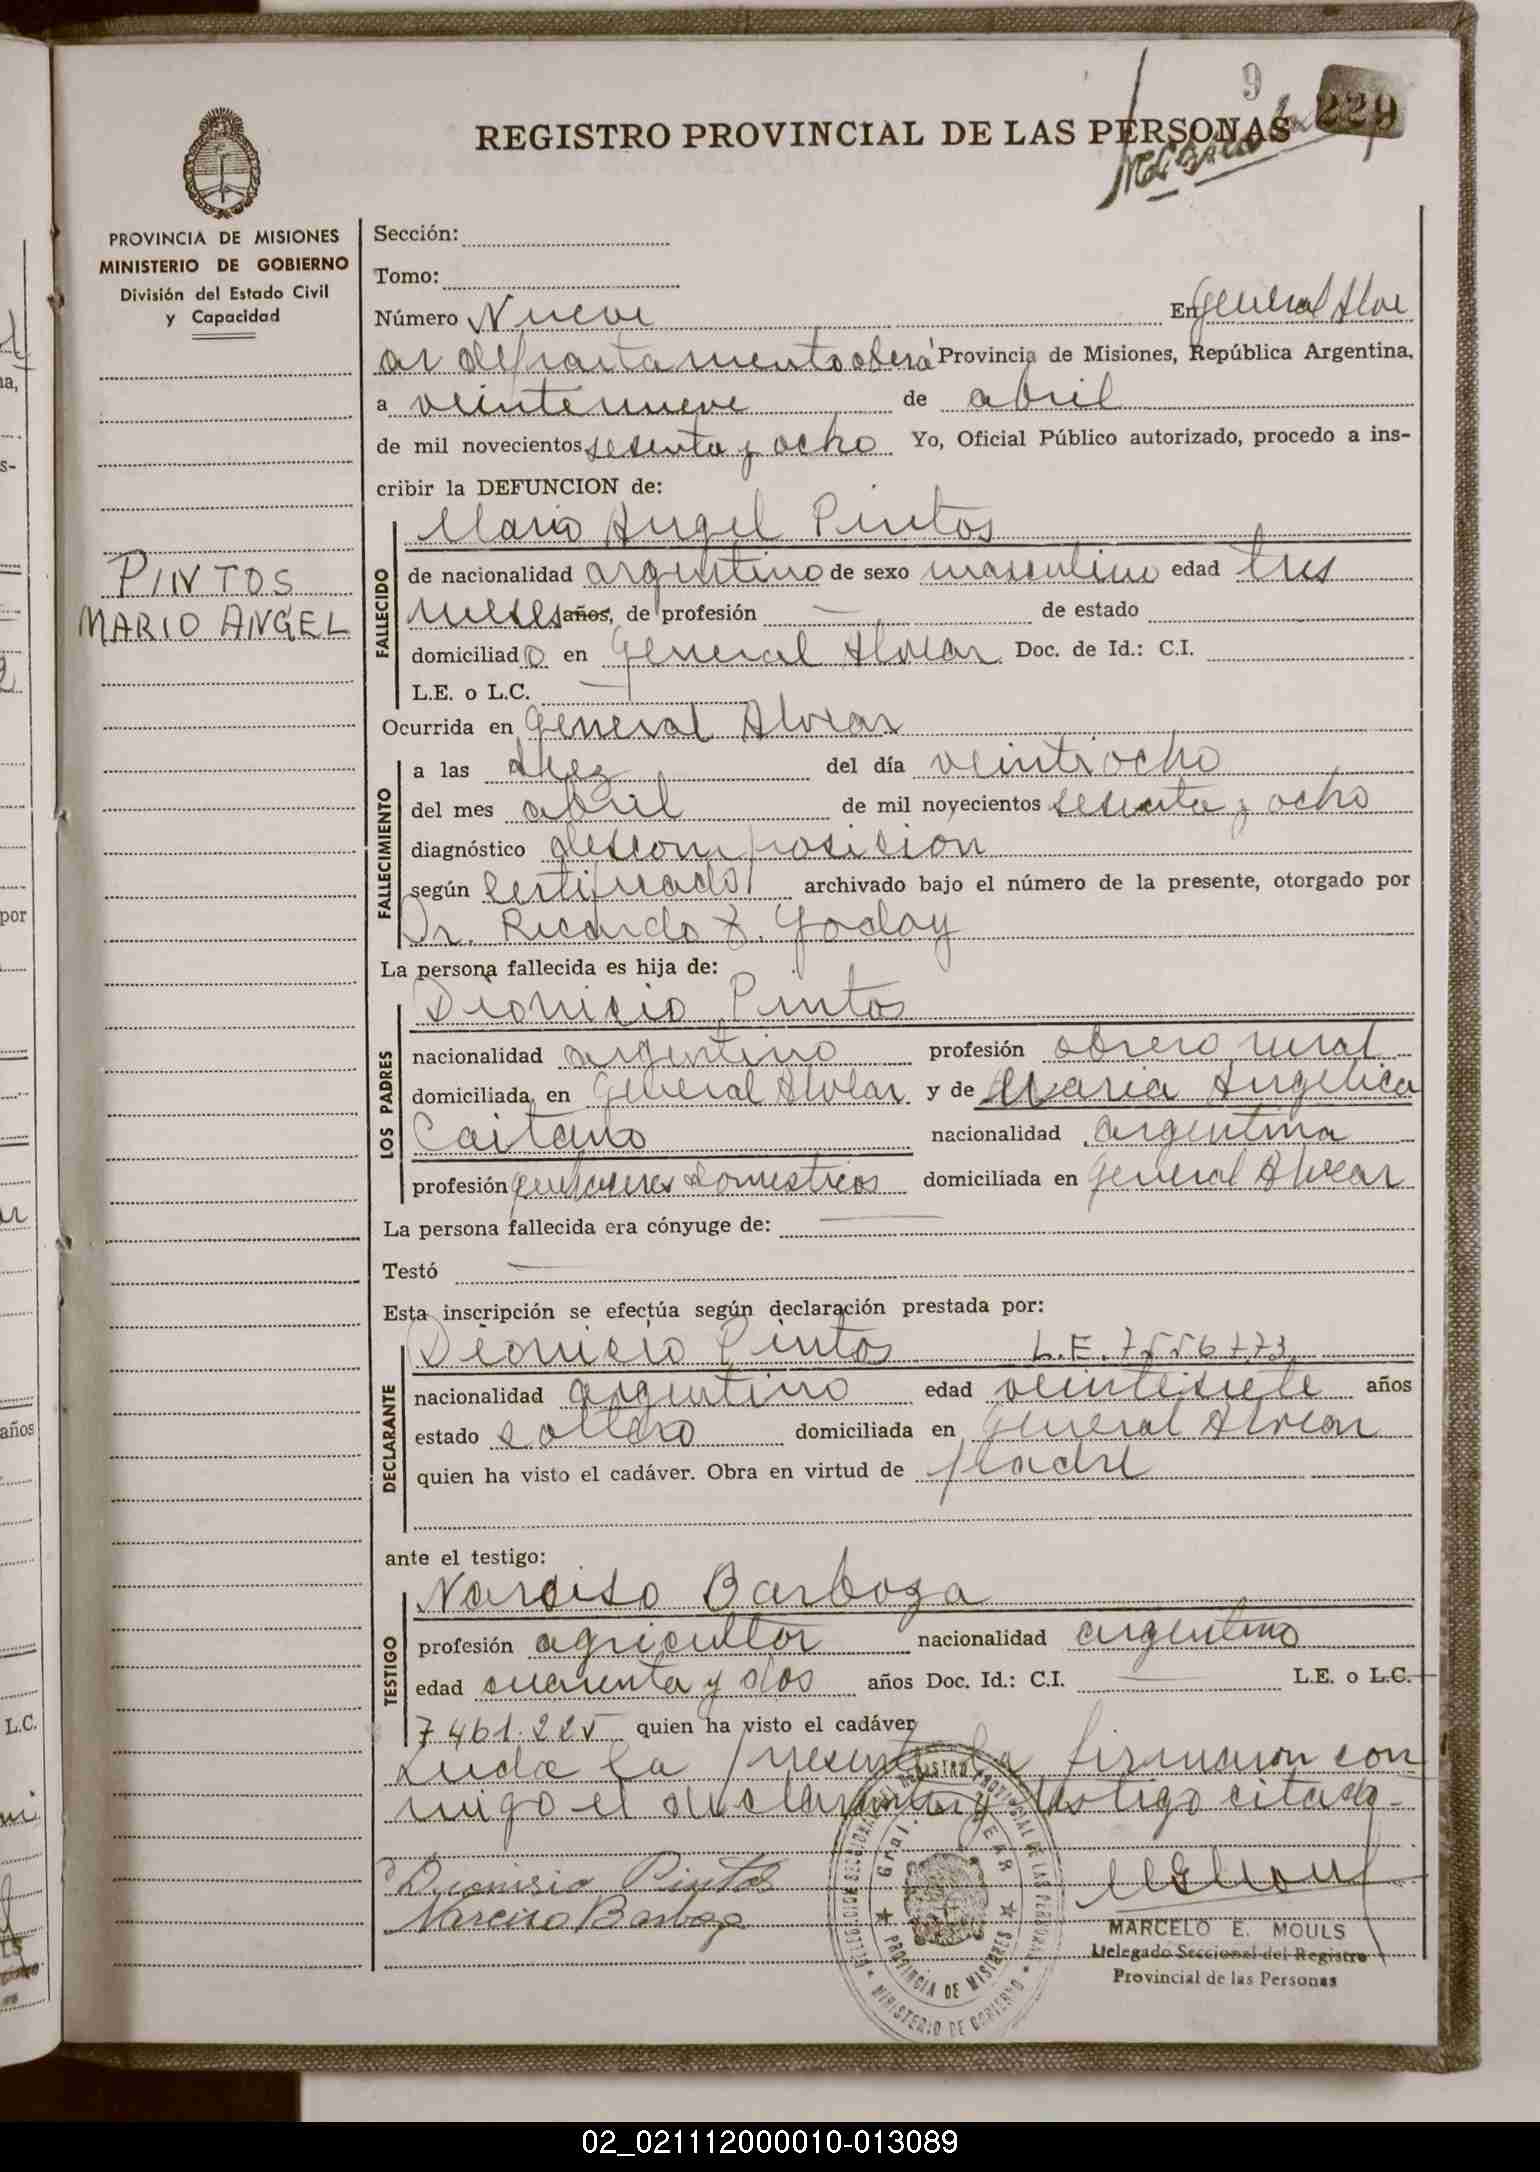 9
229
REGISTRO PROVINCIAL DE LAS PERSONAS
PROVINCIA DE MISIONES
MINISTERIO DE GOBIERNO
División del Estado Civil
y Capacidad
PINTOS
MARIO ANGEL
Sección:
Tomo:
Número Nueve En General Alve
ar departamento oberá Provincia de Misiones, República Argentina,
a veintenueve de abril
de mil novecientos sesenta y ocho Yo, Oficial Público autorizado, procedo a ins-
cribir la DEFUNCION de:
Mario Angel Pintos
FALLECIDO
de nacionalidad argentino de sexo masculino edad tres
meses años, de profesión — de estado
domiciliado en General Alvear Doc. de Id.: C.I.
L.E. o L.C. —
Ocurrida en General Alvear
FALLECIMIENTO
a las diez del día veintiocho
del mes abril de mil novecientos sesenta y ocho
diagnóstico descomposicion
según certificado archivado bajo el número de la presente, otorgado por
Dr. Ricardo Z. Godoy
La persona fallecida es hija de:
Dionicio Pintos
LOS PADRES
nacionalidad argentino profesión obrero rural
domiciliada en General Alvear y de Maria Angelica
Caitano nacionalidad argentina
profesión quehaseres domesticos domiciliada en General Alvear
La persona fallecida era cónyuge de: —
Testó —
Esta inscripción se efectúa según declaración prestada por:
Dionicio Pintos L.E. 7556773
DECLARANTE
nacionalidad argentino edad veintesiete años
estado soltero domiciliada en General Alvear
quien ha visto el cadáver. Obra en virtud de padre
ante el testigo:
Narsiso Barboza
TESTIGO
profesión agricultor nacionalidad argentino
edad cuarenta y dos años Doc. Id.: C.I. — L.E. o L.C.
7461.225 quien ha visto el cadáver
Leida la presente la firmaron con
migo el declarante y testigo citado-
Dionisio Pintos
Narciso Barboza
Gral. ALVEAR
PROVINCIA DE MISIONES
MINISTERIO DE GOBIERNO
MARCELO E. MOULS
Delegado Seccional del Registro
Provincial de las Personas
02_021112000010-013089